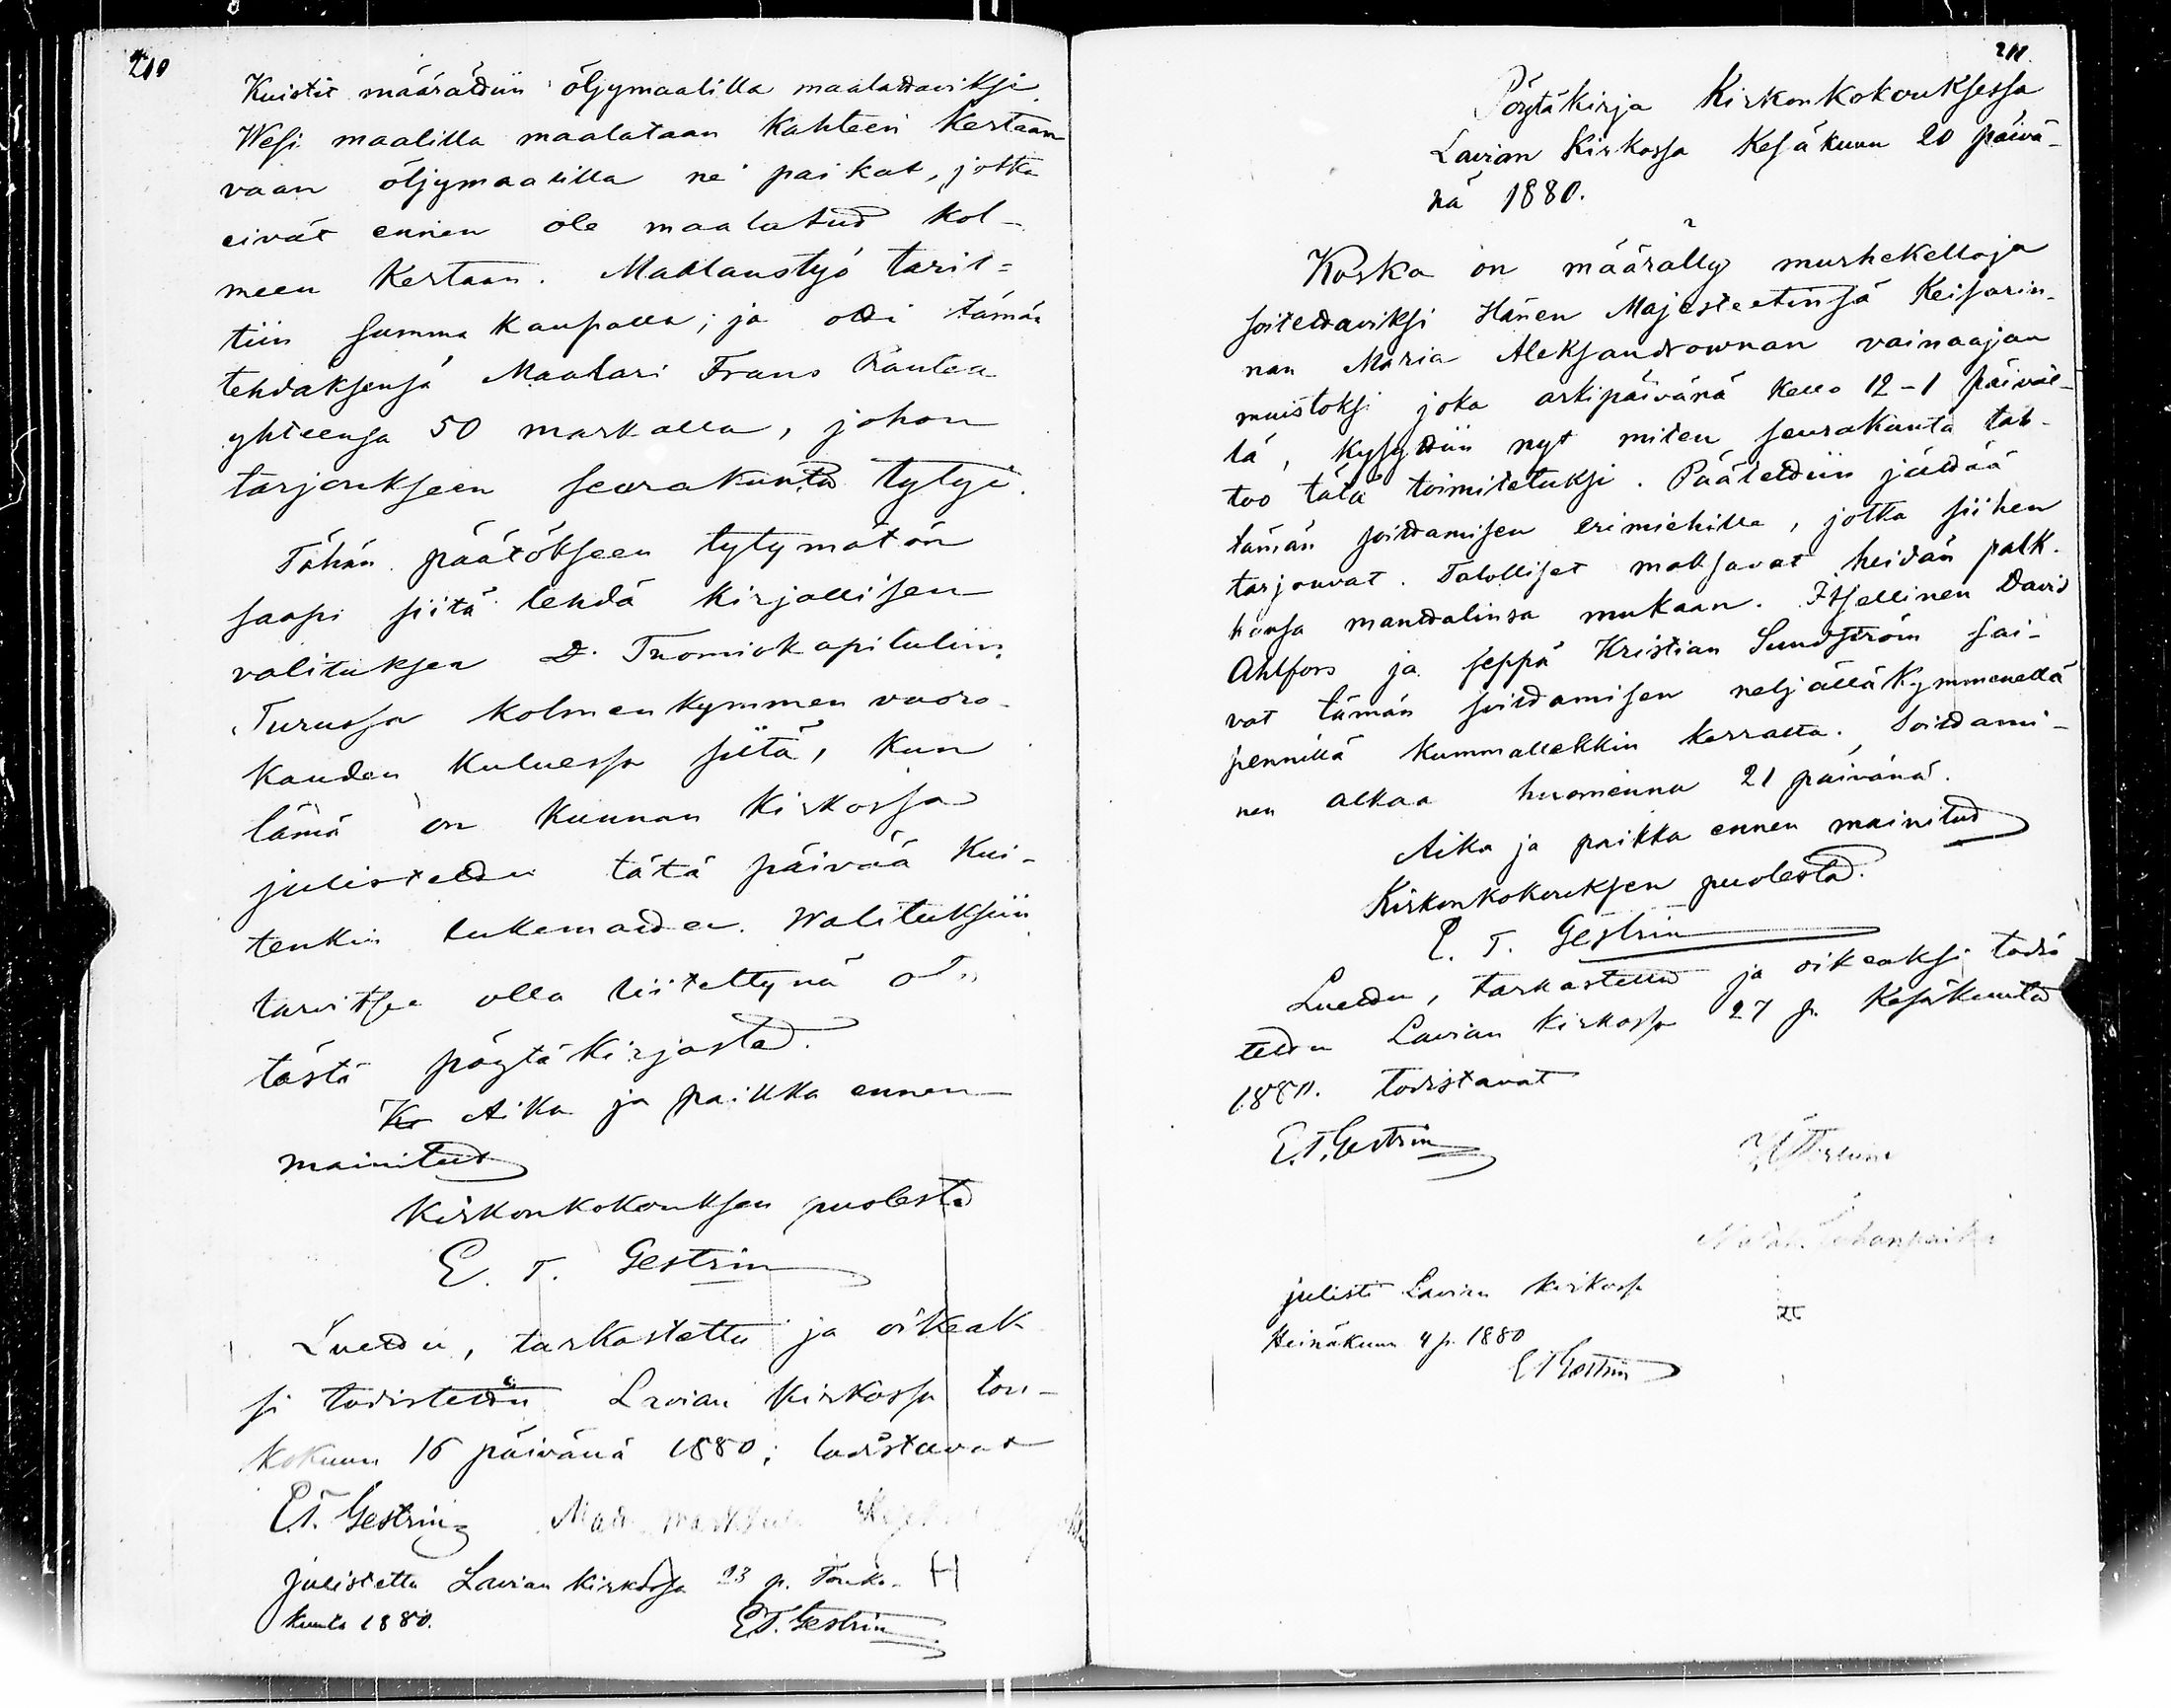 210
Kuistit määrättiin öljymaalilla maalattaviksi.
Wesi maalilla maalataan kahteen kertaan
vaan öljymaalilla ne paikat, jotka
eivät ennen ole maalatud kol-
meen kertaan. Maalaustyö tarit=
tiin summa kaupalla; ja otti tämän
tehdäksensä Maalari Frans Rantea
yhteensä 50 markalla, johon
tarjoukseen seurakunta tytyi.
Tähän päätökseen tytymätön
saapi siitä tehdä kirjallisen
valituksen D. Tuomiokapituliin
Turussa kolmenkymmen vuoro-
kauden kuluessa siitä, kun
tämä on kunnan kirkossa
julistettu tätä päivää kui-
tenkin lukematta. Walituksiin
tarvitsee olla liitettynä ot.
tästä pöytäkirjasta.
Aika ja paikka ennen
mainitud
Kirkonkokouksen puolesta
E. T. Gestrin
Luettu, tarkastettu ja oikeak
si todistettu Lavian kirkossa tou-
kokuun 16 päivänä 1880; todistavat
E.T. Gestrin
julistettu Lavian kirkossa 23 p. Touko-
kuuta 1880. E.T. Gestrin
211.
Pöytäkirja Kirkonkokouksessa
Lavian Kirkossa Kesäkuun 20 päivä-
nä 1880.
Koska on määrätty murhekelloja
soitettaviksi Hänen Majesteetinsä Keisarin-
nan Maria Aleksandrownan vainaajan
muistoksi joka arkipäivänä kello 12-1 päiväl-
lä, kysyttiin nyt miten seurakunta tah-
too tätä toimitetuksi. Päätettiin jättää
tämän soittamisen erimiehille, jotka siihen
tarjouvat. Talolliset maksavat heidän palk-
kansa manttalinsa mukaan. Itsellinen David
Ahlfors ja seppä Kristian Sundström sai-
vat tämän soittamisen neljälläkymmenellä
pennillä kummallekkin kerralta. Soittami-
nen alkaa huomenna 21 päivänä.
Aika ja paikka ennen mainitud
Kirkonkokouksen puolesta.
E. T. Gestrin
Luettu, tarkastettu ja oikeaksi todis
tettu Lavian kirkossa 27 p. Kesäkuuta
1880. todistavat
E.T. Gestrin
julisti Lavian kirkossa
Heinäkuun 4 p. 1880
E T Gestrin